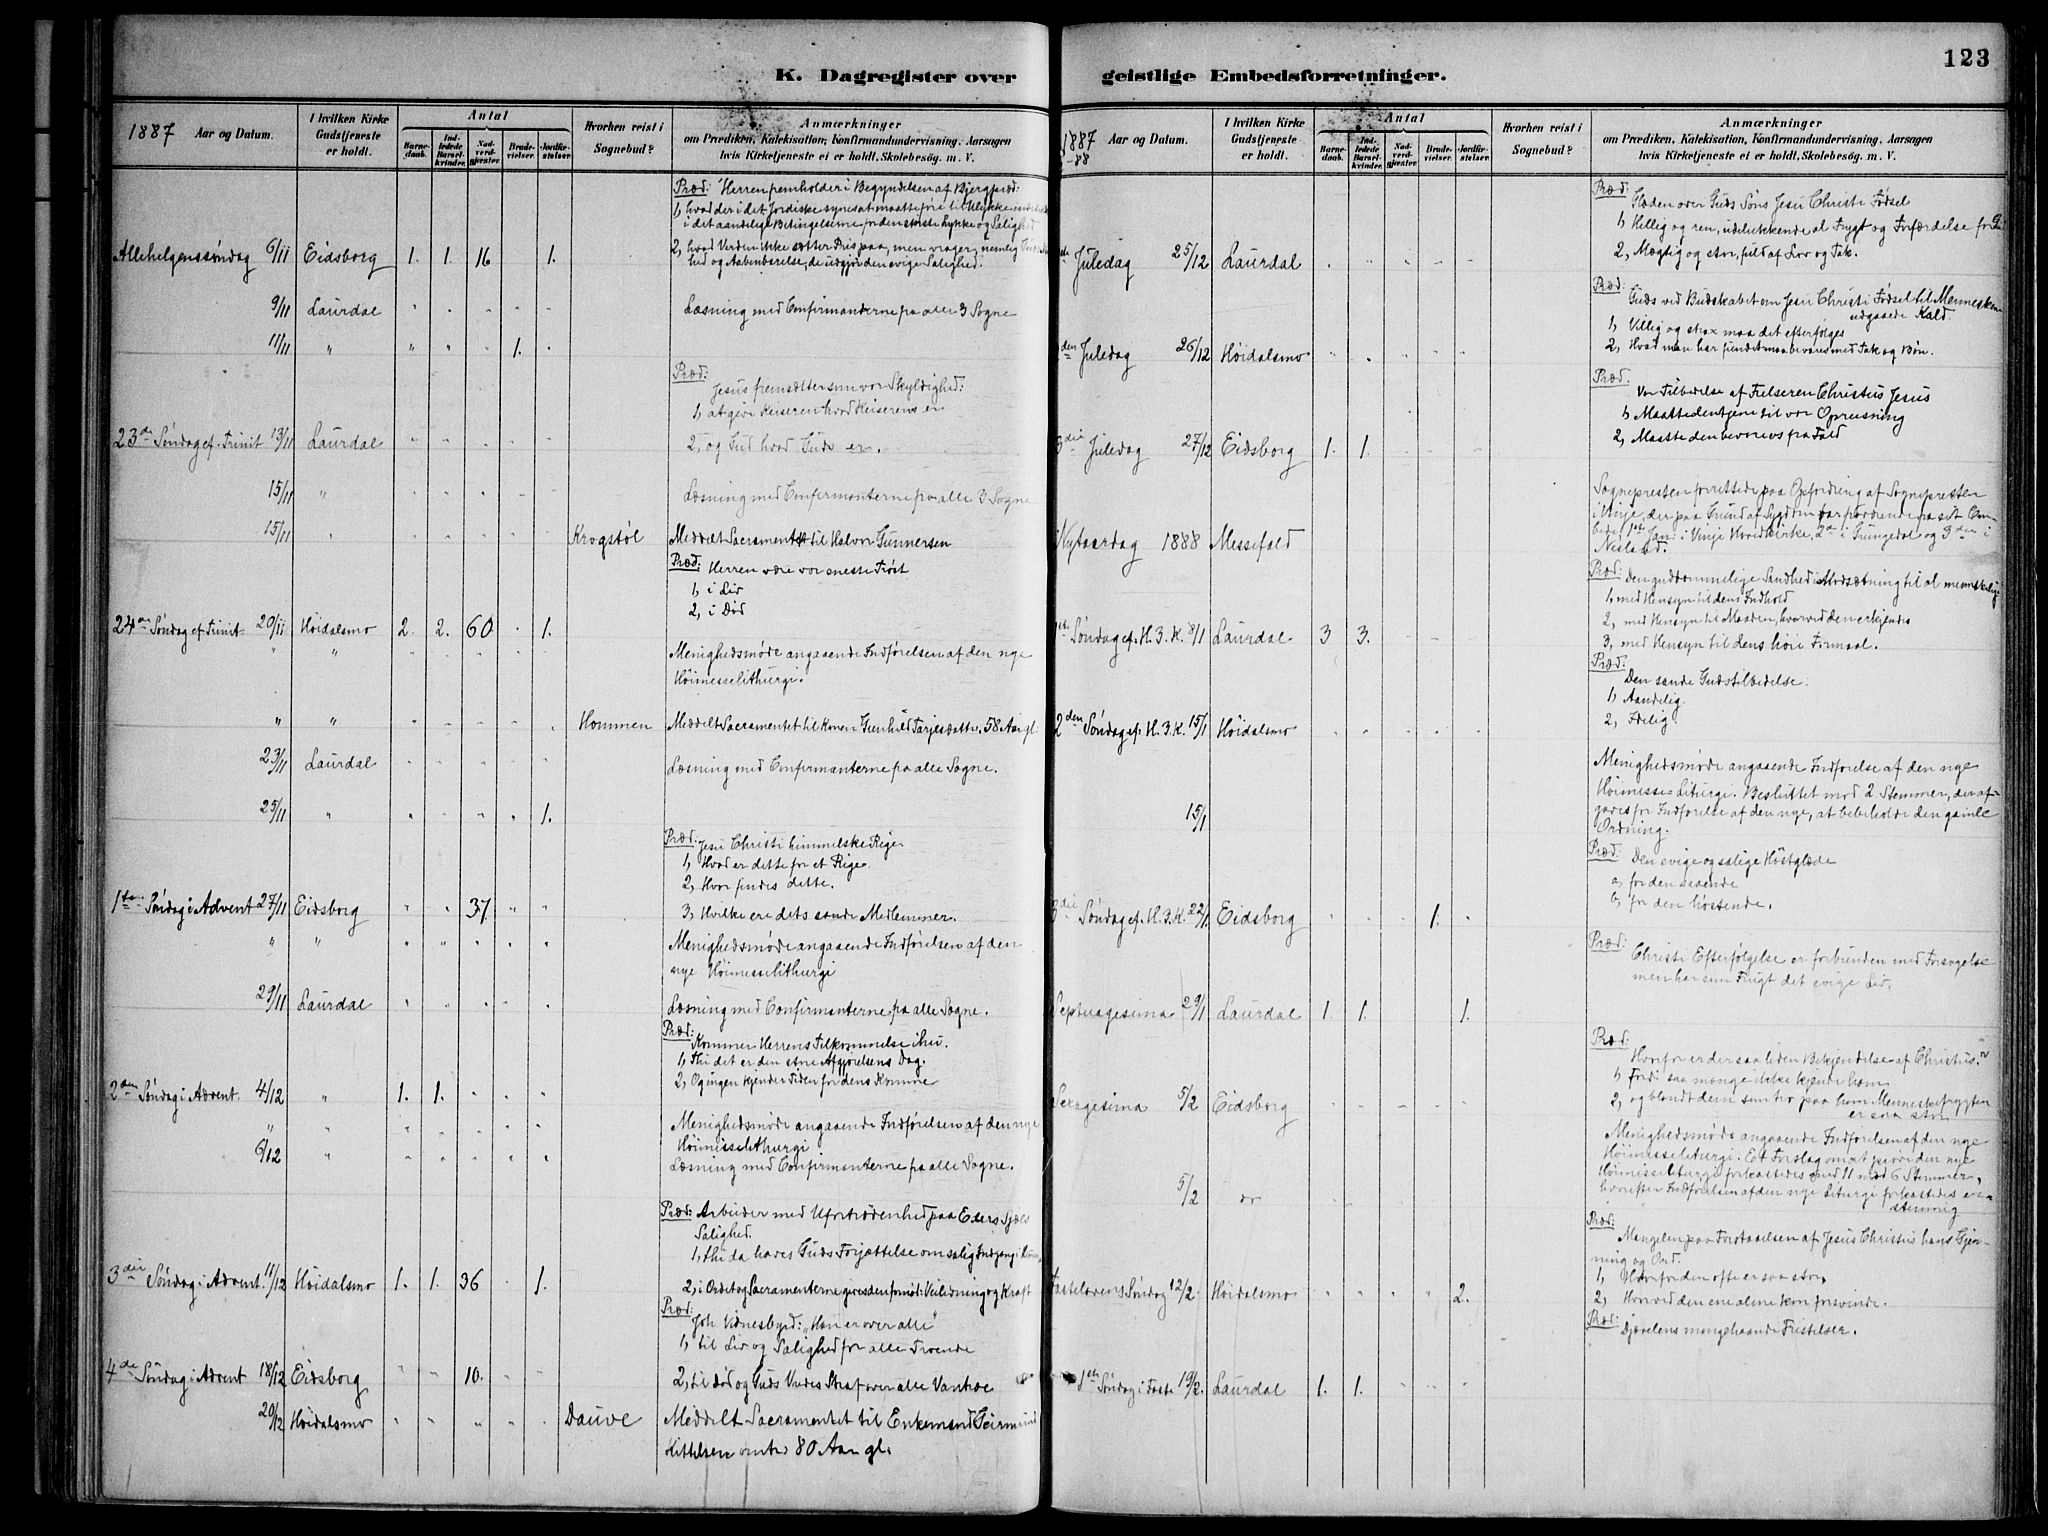 K. Dagregister over
1887 Aar og Datum.
I hvilken Kirke Gudstjeneste er holdt.
Antal
Barnedaab.
Indledede Barselkvinder.
Nadverdgjæster.
Brudevielser.
Jordfæstelser.
Hvorhen reist i Sognebud?
Anmærkninger
om Prædiken, Katekisation, Konfirmandundervisning, Aarsagen
hvis Kirketjeneste ei er holdt, Skolebesøg. m. V.
Præd: Herren fremholder i Begyndelsen af Bjergpræd:
1, hvad der i det Jordiske synes at maatte føre til Ulykke
i det aandelige Betingelserne for den største Lykke og Salighed
2, hvad Verden ikke sætter Pris paa, men vrager, nemlig
Allehelgenssøndag 6/11 Eidsborg 1. 1. 16 1. hed og Aabenbarelse, de udgjør den evige Salighed.
9/11 Laurdal Læsning med Confirmanderne fra alle 3 Sogne
11/11 " " " " 1. "
Præd:
Jesus fremsætter som vor Skyldighed:
1, at give Keiseren hvad Keiserens er
23de Søndag ef. Trinit 13/11 Laurdal 2, og Gud hvad Guds er.
15/11 " Læsning med Confirmanterne fra alle 3 Sogne
15/11 " Krogstøl Meddelt Sacramentet til Halvor Gunnersen
Præd: Herren være vor eneste Trøst
1, i Liv
2, i Død
24de Søndag ef Trinit. 20/11 Høidalsmo 2. 2. 60 1.
" " Menighedsmøde angaaende Indførelsen af den nye
Høimesselithurgi.
" " Hommen Meddelt Sacramentet til Konen Gunhild Tarjesdatter, 58 Aar gl:
23/11 Laurdal Læsning med Confirmanterne fra alle Sogne.
25/11 " 1.
Præd: Jesu Christi himmelske Rige.
1, Hvad er dette for et Rige.
2, Hvor findes dette.
1ste Søndag i Advent 27/11 Eidsborg " " 37 " " 3, Hvilke ere dets sande Medlemmer.
" " Menighedsmøde angaaende Indførelsen af den
nye Høimesselithurgi
29/11 Laurdal Læsning med Confirmanterne fra alle Sogne.
Præd: Kommer Herrens Tilkommelse ihu.
1, Thi det er den store Afgjørelsens Dag.
2, Og ingen kjender Tiden for dens Komme
2den Søndag i Advent. 4/12 " 1. 1.
" " Menighedsmøde angaaende Indførelsen af den nye
Høimesselithurgi
6/12 " Læsning med Confirmanterne fra alle Sogne.
Præd: Arbeider med Ufortrødenhed paa Eders Sjæls
Salighed.
1, thi da haves Guds Forjættelse om salig Indgang i
3die Søndag i Advent. 11/12 Høidalsmo 1. 1. 36 1. 2, i Ordet og Sacramenterne gives den fornød: Veiledning og Kraft
Præd: Joh Vidnesbyrd: "Han er over alle"
1, til Liv og Salighed for alle Troende
4de Søndag i Advent 18/12 Eidsborg " " 10. 2, til Død og Guds Vredes Straf over alle Vantroe
20/12 Høidalsmo Dauve Meddelt Sacramentet til Enkemand Geirmund
Kittelsen omtr. 80 Aar gl.
geistlige Embedsforretninger.
123
1887 -88 Aar og Datum.
I hvilken Kirke Gudstjeneste er holdt.
Antal
Barnedaab.
Indledede Barselkvinder.
Nadverdgjæster.
Brudevielser.
Jordfæstelser.
Hvorhen reist i Sognebud?
Anmærkninger
om Prædiken, Katekisation, Konfirmandundervisning, Aarsagen
hvis Kirketjeneste ei er holdt, Skolebesøg. m. V.
Præd:
Glæden over Guds Søns Jesu Christi Fødsel
1, Hellig og ren, udelukkende al Frygt og Forfærdelse for Gud
Juledag 25/12 Laurdal 2, Mægtig og stor, fuld af Lov og Tak.
Præd:
Guds ved Budskabet om Jesu Christi Fødsel til Menneskene
udgaaede Kald.
1, Villig og strax maa det efterfølges
2den Juledag 26/12 Høidalsmo 2, Hvad man har fundet maa bevares med Tak og Bøn.
Præd:
Vor Tilbedelse af Frelseren Christus Jesus
1, Maatte den tjene til vor Opreisning
3die Juledag 27/12 Eidsborg 1. 1. 2, Maatte den bevares fra Fald
Sognepresten forrettede paa Opfordring af Sognepresten
i Vinje, der paa Grund af Sygdom
Nytaardag 1888 Messefald bede, 1st Jan: i Vinje Hovedkirke, 2de i Grungedal og 3die i
Nesland.
Præd: Den gudommelige Sandhed i Modsætning til al menneskelig
1, med Hensyn til dens Indhold
2, med Hensyn til Maaden, hvorved den erkjendes
1ste Søndag ef. H. 3. K. 8/1 Laurdal 3 3. 3, med Hensyn til dens høie Formaal.
Præd:
Den sande Gudstilbedelse:
1, Aandelig.
2, Idelig.
2den Søndag ef. H. 3. K. 15/1 Høidalsmo
Menighedsmøde angaaende Indførelse af den nye
Høimesse-Liturgi. Besluttet mod 2 Stemmer, der af-
15/1 gaves for Indførelse af den nye, at bibeholde den gamle
Ordning.
Præd: Den evige og salige Høstglæde
a, for den saaende
3die Søndag ef. H. 3. K. 22/1. Eidsborg 1. b, for den høstende.
Præd:
Christi Efterfølgelse er forbunden med Forsagelse
men har som Frugt det evige Liv.
Septuagesima 29/1 Laurdal 1. 1. 1.
Præd:
Hvorfor er der saa liden Bekjendelse af Christus?
1, Fordi saa mange ikke kjende ham
Sexagesima 5/2 Eidsborg 2, og blandt dem som tro paa ham Menneskefrygten
er saa stor
Menighedsmøde angaaende Indførelsen af den nye
Høimesseliturgi. Et Forslag om at prøve den nye
Høimesseliturgi forkastedes med 11 mod 6 Stemmer,
5/2 do hvorefter Indførelsen af den nye Liturgi forkastedes en-
stemmig
Præd:
Mangelen paa Forstaaelsen af Jesus Christus hans Gjer-
ning og Ord.
1, Hvorfor den ofte er saa stor,
Fastelavens Søndag 12/2. Høidalsmo 2. 2, Hvorved den ene alene kan forsvinde.
Præd: Djævelens mangehaande Fristelser.
1ste Søndag i Faste 19/2. Laurdal 1. 1.